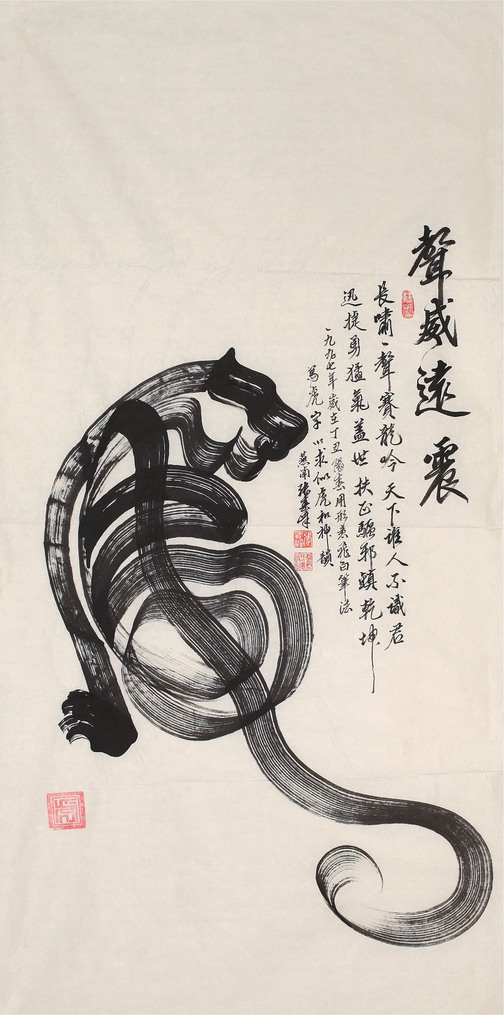 聲威遠震
長嘯一聲賽龍吟天下誰人不識君
迅捷勇猛氣蓋世扶正驅邪鎮乾坤
一九九七年歲在丁丑用形意飛白筆法
寫虎字以求似虎和神韻
燕南